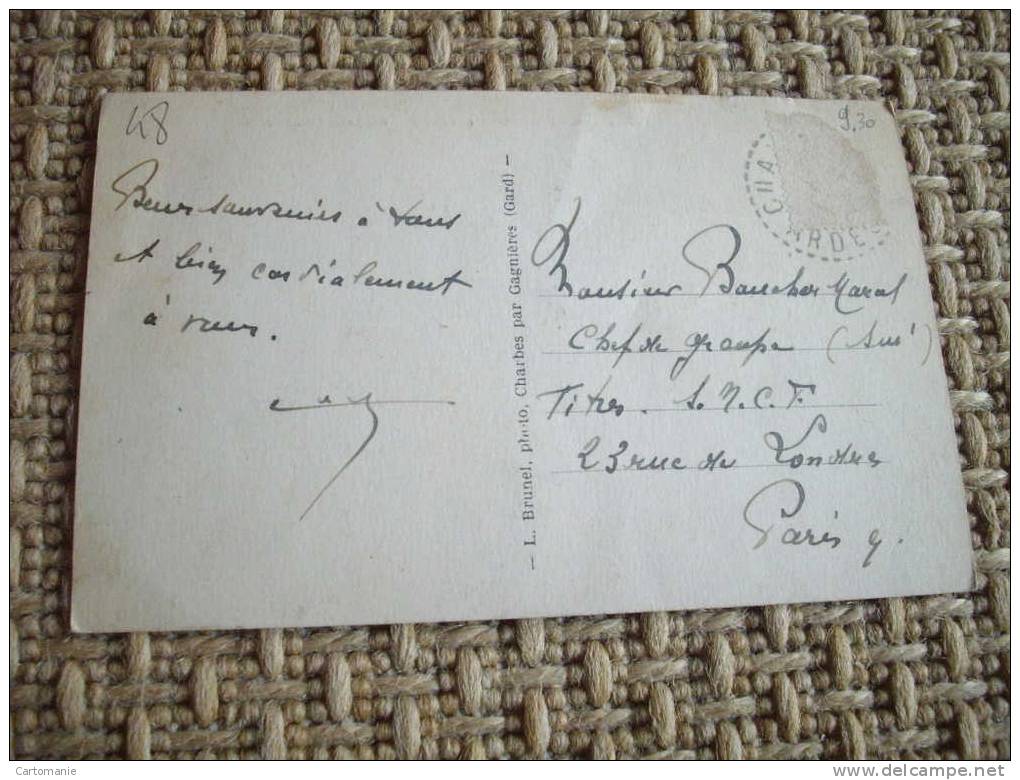 48
9,30
CHA
ARDE
Bons souvenirs à tous
et bien cordialement
à vous.
— L. Brunel, photo, Charbes par Gagnières (Gard) —
Monsieur
Chef de groupe
Titres. S.N.C.F.
23 rue de Londres
Paris 9.
Cartomanie
www.delcampe.net